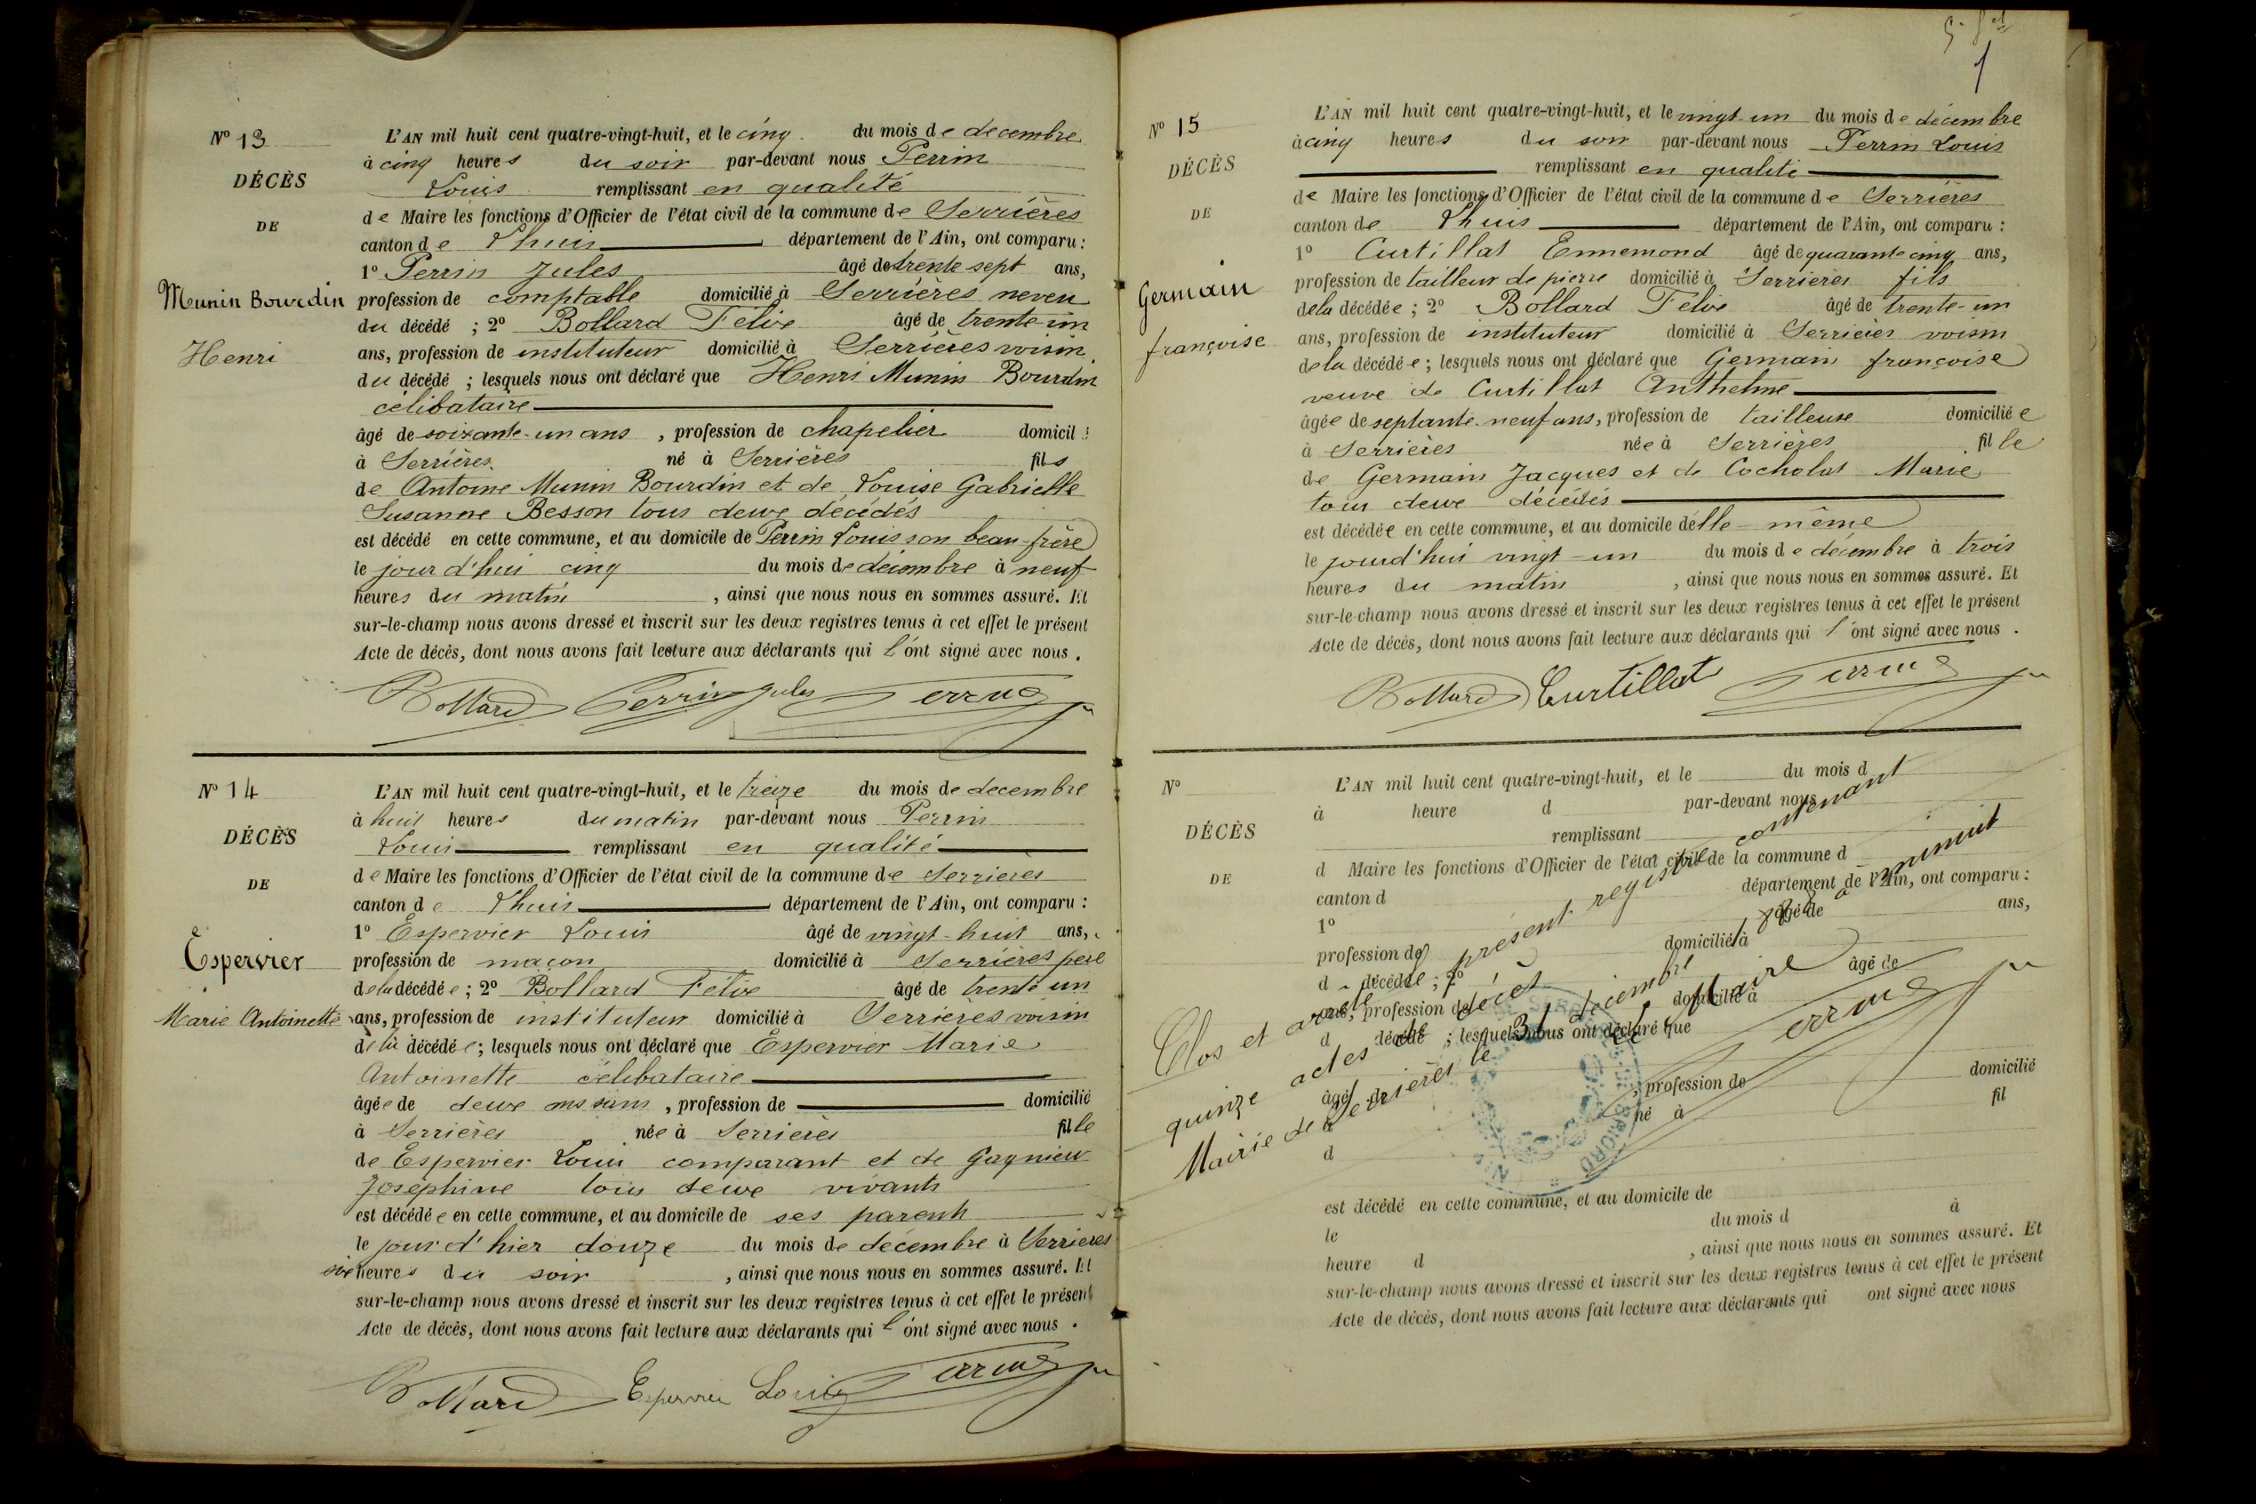 Nº 13
DÉCÈS
DE
Munin Bourdin
Henri
L'AN mil huit cent quatre-vingt-huit, et le cinq du mois de décembre
à cinq heures du soir par-devant nous Perrin
Louis remplissant en qualité
de Maire les fonctions d'Officier de l'état civil de la commune de Serrières
canton de Lhuis département de l'Ain, ont comparu :
1º Perrin Jules âgé de trente sept ans,
profession de comptable domicilié à Serrières neveu
du décédé ; 2º Bollard Félix âgé de trente-un
ans, profession de instituteur domicilié à Serrières voisin
du décédé ; lesquels nous ont déclaré que Henri Munin Bourdin
célibataire
âgé de soixante-un ans , profession de chapelier domicil
à Serrières né à Serrières fils
de Antoine Munin Bourdin et de Louise Gabrielle
Susanne Besson tous deux décédés
est décédé en cette commune, et au domicile de Perrin Louis son beau-frère
le jour d'hui cinq du mois de décembre à neuf
heures du matin , ainsi que nous nous en sommes assuré. Et
sur-le-champ nous avons dressé et inscrit sur les deux registres tenus à cet effet le présent
Acte de décès, dont nous avons fait lecture aux déclarants qui l'ont signé avec nous .
Bollard Perrin Jules Perrin
Nº 14
DÉCÈS
DE
Espervier
Marie Antoinette
L'AN mil huit cent quatre-vingt-huit, et le treize du mois de decembre
à huit heures du matin par-devant nous Perrin
Louis remplissant en qualité
de Maire les fonctions d'Officier de l'état civil de la commune de Serrières
canton de Lhuis département de l'Ain, ont comparu :
1º Espervier Louis âgé de vingt-huit ans,
profession de maçon domicilié à Serrières père
de la décédée ; 2º Bollard Félix âgé de trente un
ans, profession de instituteur domicilié à Serrières voisin
de la décédée ; lesquels nous ont déclaré que Espervier Marie
Antoinette célibataire
âgée de deux ans , profession de domicilié
à Serrières née à Serrières fille
de Espervier Louis comparant et de Gagnieux
Joséphine tous deux vivants
est décédée en cette commune, et au domicile de ses parents
le jour d'hier douze du mois de décembre à Serrières
six heures du soir , ainsi que nous nous en sommes assuré. Et
sur-le-champ nous avons dressé et inscrit sur les deux registres tenus à cet effet le présent
Acte de décès, dont nous avons fait lecture aux déclarants qui l'ont signé avec nous .
Bollard Espervier Louis Perrin
1
Nº 15
DÉCÈS
DE
Germain
françoise
L'AN mil huit cent quatre-vingt-huit, et le vingt-un du mois de décembre
à cinq heures du soir par-devant nous Perrin Louis
remplissant en qualité
de Maire les fonctions d'Officier de l'état civil de la commune de Serrières
canton de Lhuis département de l'Ain, ont comparu :
1º Curtillat Ennemond âgé de quarante cinq ans,
profession de tailleur de pierre domicilié à Serrières fils
de la décédée ; 2º Bollard Félix âgé de trente-un
ans, profession de instituteur domicilié à Serrières voisin
de la décédée ; lesquels nous ont déclaré que Germain françoise
veuve de Curtillat Anthelme
âgée de septante-neuf ans, profession de tailleuse domiciliée
à Serrières née à Serrières fille
de Germain Jacques et de Cocholat Marie
tous deux décédés
est décédée en cette commune, et au domicile d'elle-même
le jourd'hui vingt-un du mois de décembre à trois
heures du matin , ainsi que nous nous en sommes assuré. Et
sur-le-champ nous avons dressé et inscrit sur les deux registres tenus à cet effet le présent
Acte de décès, dont nous avons fait lecture aux déclarants qui l'ont signé avec nous .
Bollard Curtillat Perrin
Nº
DÉCÈS
DE
L'AN mil huit cent quatre-vingt-huit, et le du mois d
à heure d par-devant nous
remplissant
d Maire les fonctions d'Officier de l'état civil de la commune d
canton d département de l'Ain, ont comparu :
1º âgé de ans,
profession de domicilié à
d décédé ; 2º âgé de
ans, profession de domicilié à
d décédé ; lesquels nous ont déclaré que
âgé de , profession de domicilié
à né à fil
d
est décédé en cette commune, et au domicile de
le du mois d à
heure d , ainsi que nous nous en sommes assuré. Et
sur-le-champ nous avons dressé et inscrit sur les deux registres tenus à cet effet le présent
Acte de décès, dont nous avons fait lecture aux déclarants qui ont signé avec nous
Clos et arrêté le présent registre contenant
quinze actes de décès
Mairie de Serrières le 31 décembre 1888 à minuit
Le Maire
Perrin